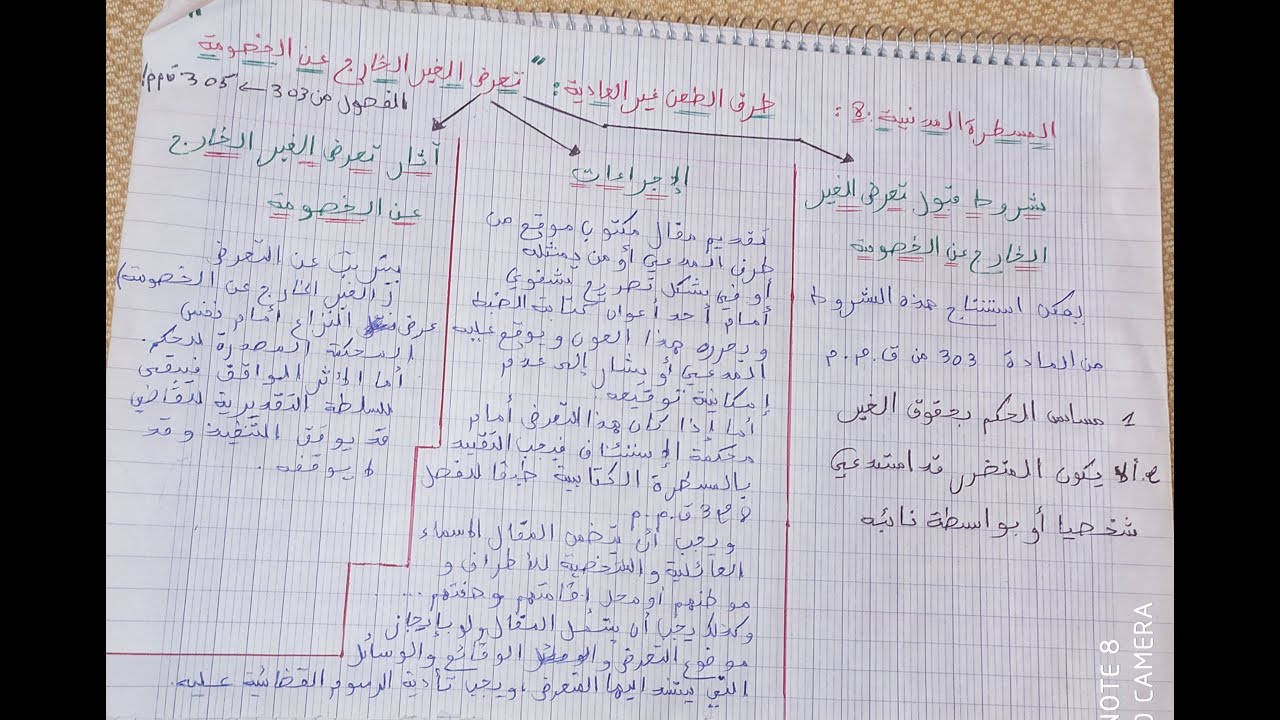 المسطرة المدنية 8: طرق الطعن غير العادية: "تعرض الغير الخارج عن الخصومة"
الفصول من 303 ← 305 ق م م
شروط قبول تعرض الغير
الخارج عن الخصومة
يمكن استنتاج هذه الشروط
من المادة 303 من ق.م.م
1 مساس الحكم بحقوق الغير
2. ألا يكون المتضرر قد استدعي
شخصيا أو بواسطة نائبه
الإجراءات
تقديم مقال مكتوب موقع من
طرف المدعي أو من يمثله
أو في شكل تصريح شفوي
أمام أحد أعوان كتابة الضبط
ويحرره هذا العون ويوقع عليه
المدعي أو يشار إلى عدم
إمكانية توقيعه.
أما إذا كان هذا التعرض أمام
محكمة الإستئناف فيجب التقيد
بالمسطرة الكتابية طبقا للفصل
ق.م.م
ويجب أن يتضمن المقال الاسماء
العائلية والشخصية للأطراف و
موطنهم أو محل إقامتهم وصفتهم ...
وكذلك يجب أن يشمل المقال ولو بإيجاز
موضوع التعرض والوقائع والوسائل
التي يستند اليها المتعرض، ويجب تأدية الرسوم القضائية عليه.
آثار تعرض الغير الخارج
عن الخصومة
يترتب عن التعرض
(الغير الخارج عن الخصومة)
عرض النزاع أمام نفس
المحكمة المصدرة للحكم.
أما الأثر الواقف فيبقى
للسلطة التقديرية للقاضي
قد يوقف التنفيذ وقد
لا يوقفه.
NOTE 8
CAMERA